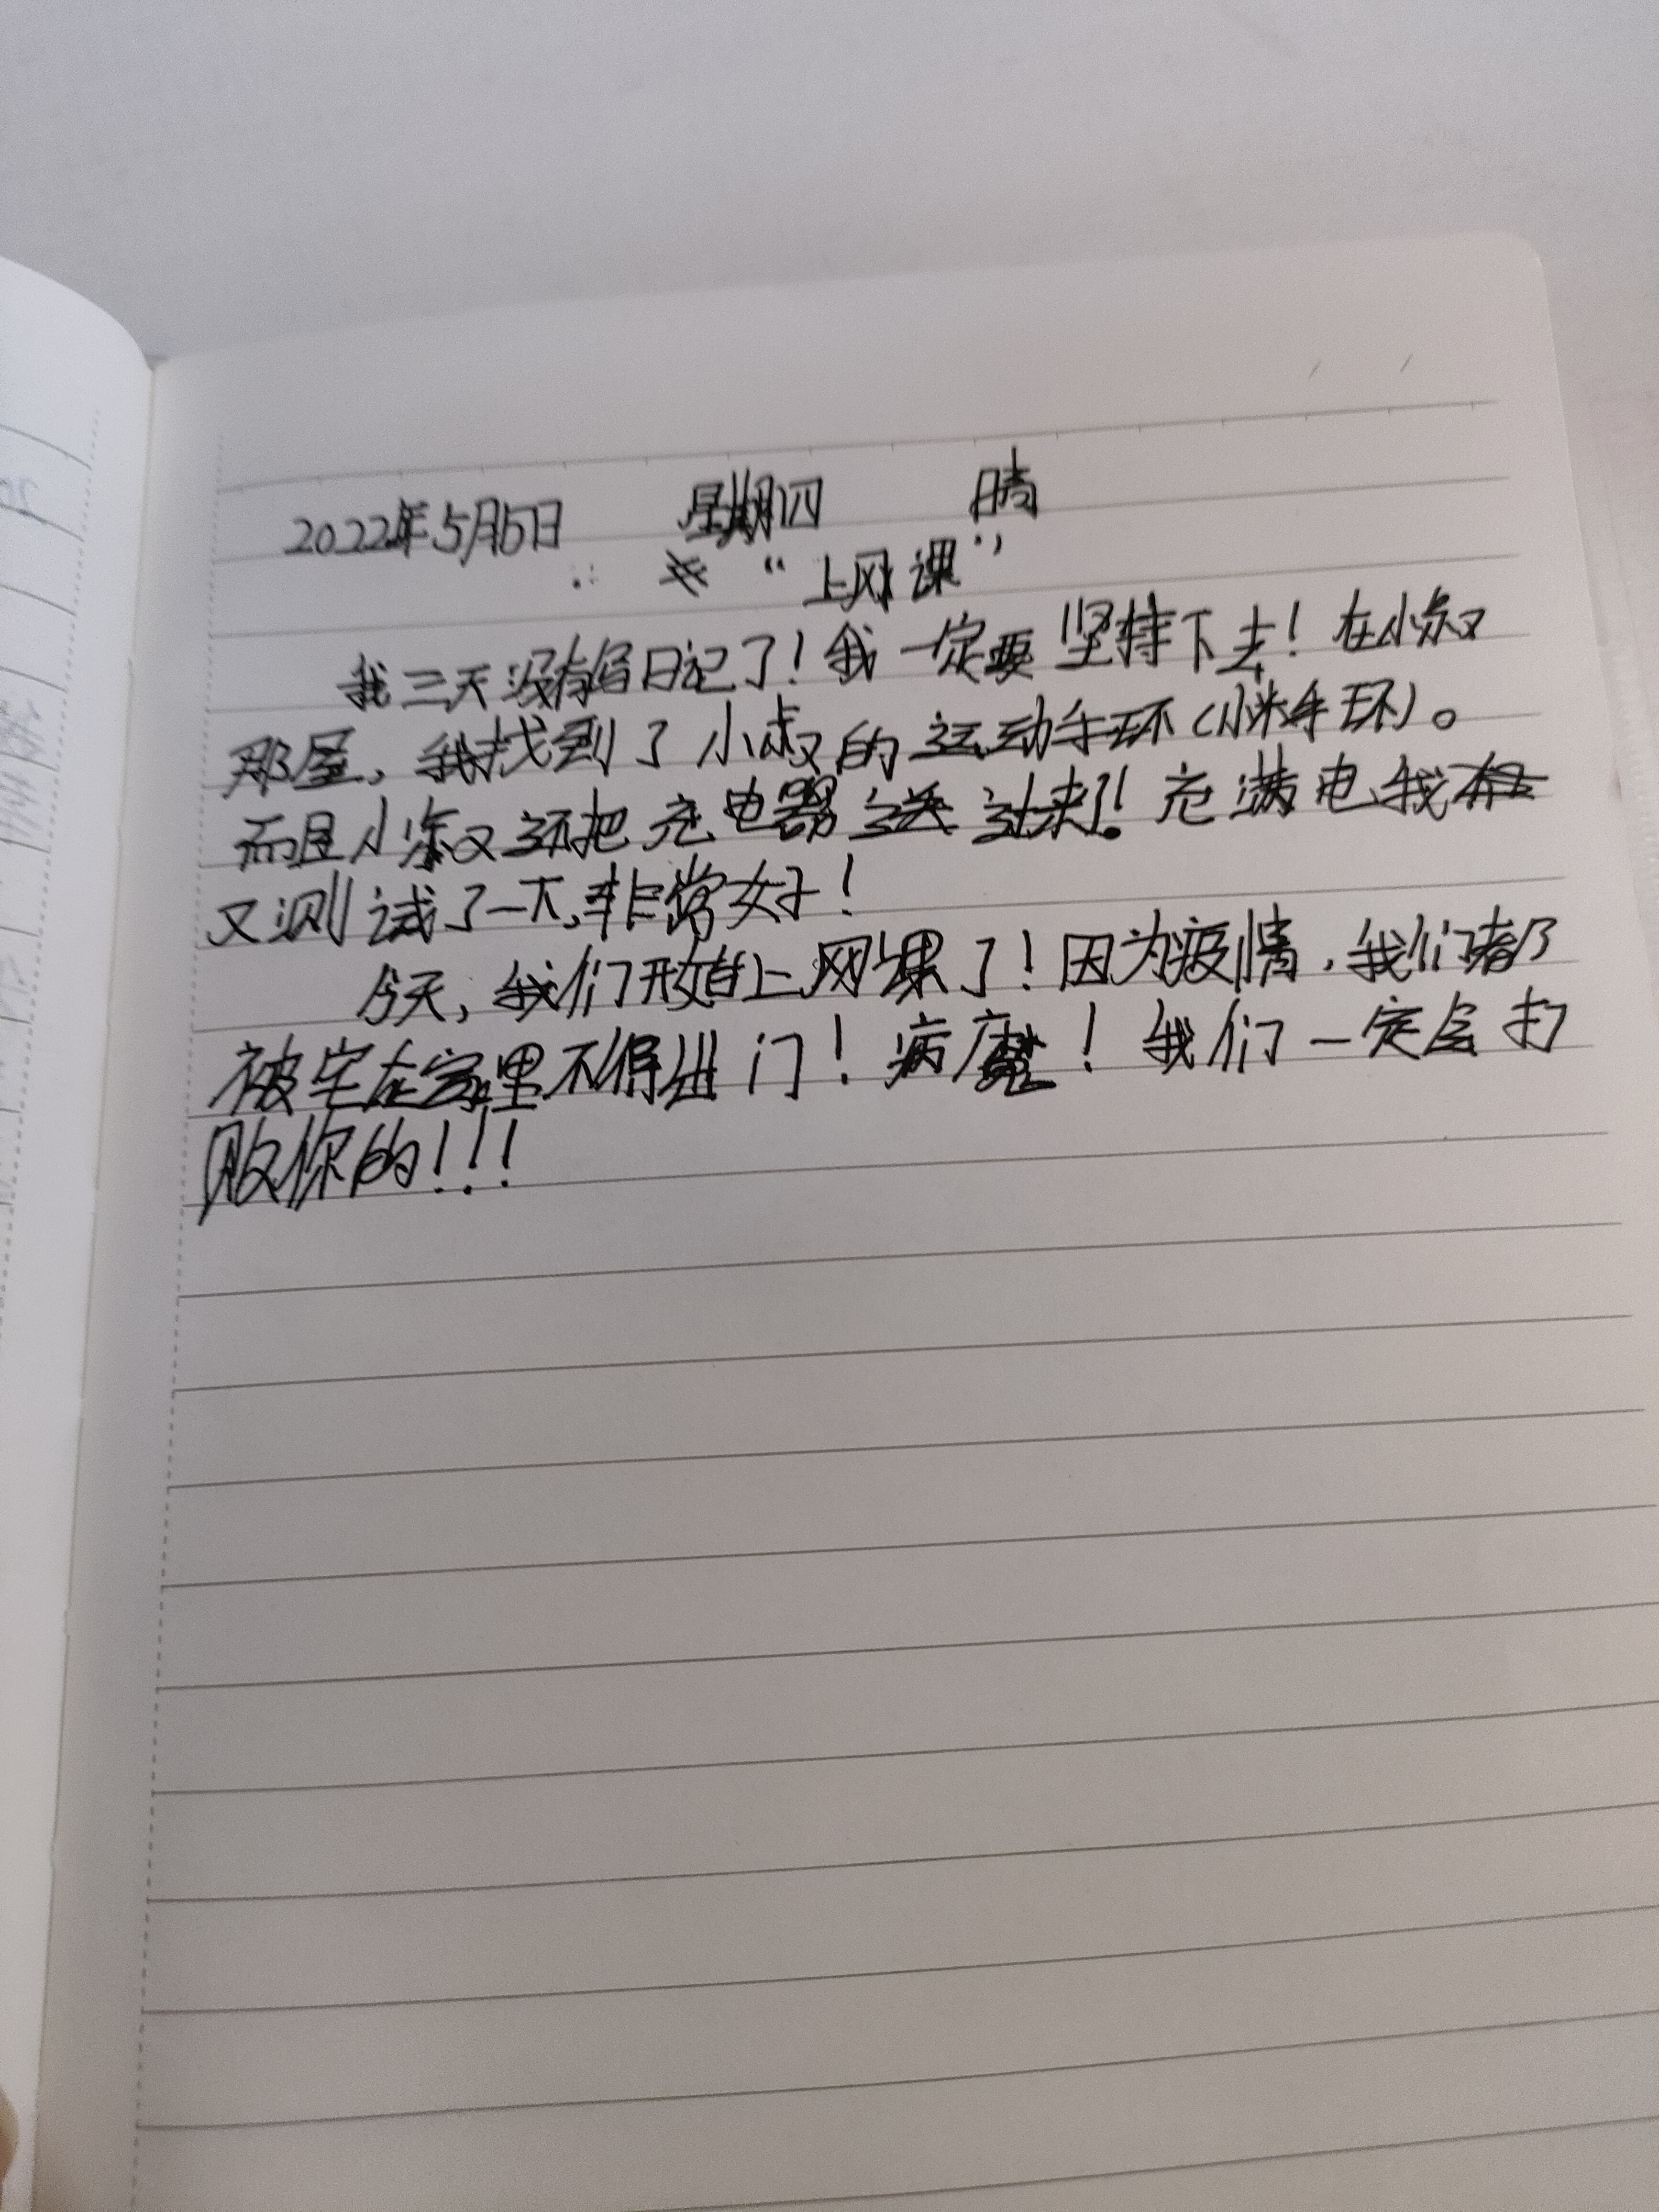 2022年5月5日 星期四 晴
“上网课”
我三天没有写日记了！我一定要坚持下去！在小叔
那屋，我找到了小叔的运动手环（小米手环）。
而且小叔还把充电器送过来了！充满电我
又测试了一下，非常好！
今天，我们开始上网课了！因为疫情，我们都
被宅在家里不得出门！病魔！我们一定会打
败你的！！！